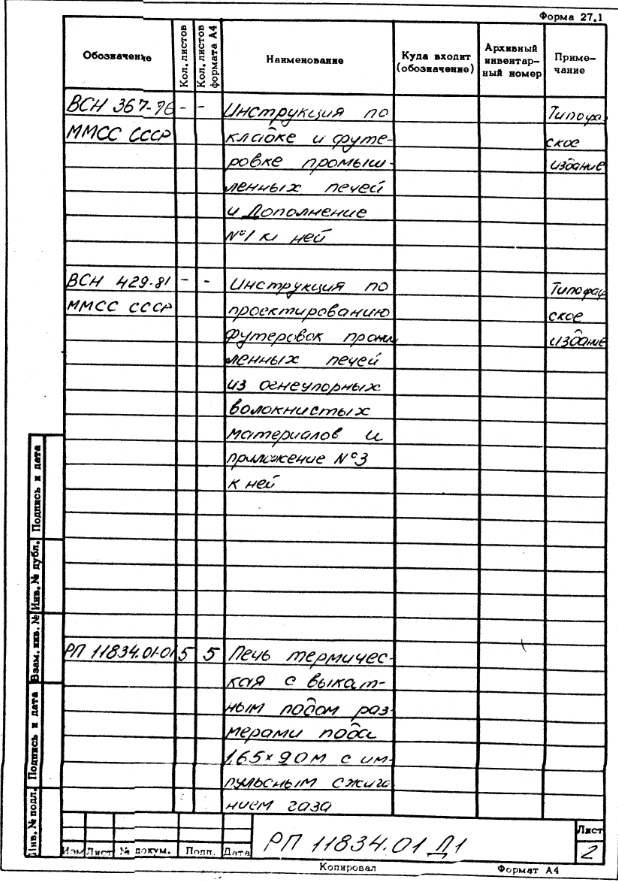 Форма 27.1
Обозначение Кол. листов Кол. листов формата А4 Наименование Куда входит (обозначение) Архивный инвентарный номер Примечание
ВСН 367-76 - - Инструкция по Типограф
ММСС СССР кладке и футе- ское
ровке промыш- издание
ленных печей
и Дополнение
№1 к ней
ВСН 429-81 - - Инструкция по Типограф
ММСС СССР проектированию ское
футеровок промыш издание
ленных печей
из огнеупорных
волокнистых
материалов и
приложение №3
к ней
РП 11834.01-01 5 5 Печь термичес-
кая с выкат-
ным подом раз-
мерами пода
1.65×9.0м с им-
пульсным сжига
нием газа
Инв. № подл. Подпись и дата Взам. инв. № Инв. № дубл. Подпись и дата
РП 11834.01 Д1
Лист
2
Изм Лист № докум. Подп. Дата
Копировал Формат А4